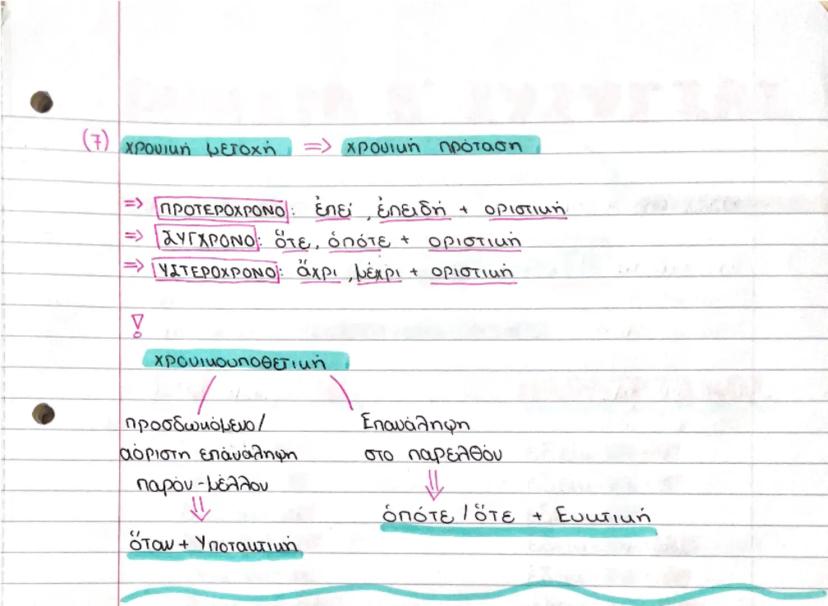 (7) χρονική μετοχή => χρονική πρόταση
=> ΠΡΟΤΕΡΟΧΡΟΝΟ: ἐπεί, ἐπειδή + οριστική
=> ΣΥΓΧΡΟΝΟ: ὅτε, ὁπότε + οριστική
=> ΥΣΤΕΡΟΧΡΟΝΟ: ἄχρι, μέχρι + οριστική
!
χρονικουποθετική
προσδωκόμενο/
αόριστη επανάληψη
παρόν-μέλλον
⇓
ὅταν + Υποτακτική
Επανάληψη
στο παρελθόν
⇓
ὁπότε / ὅτε + Ευκτική